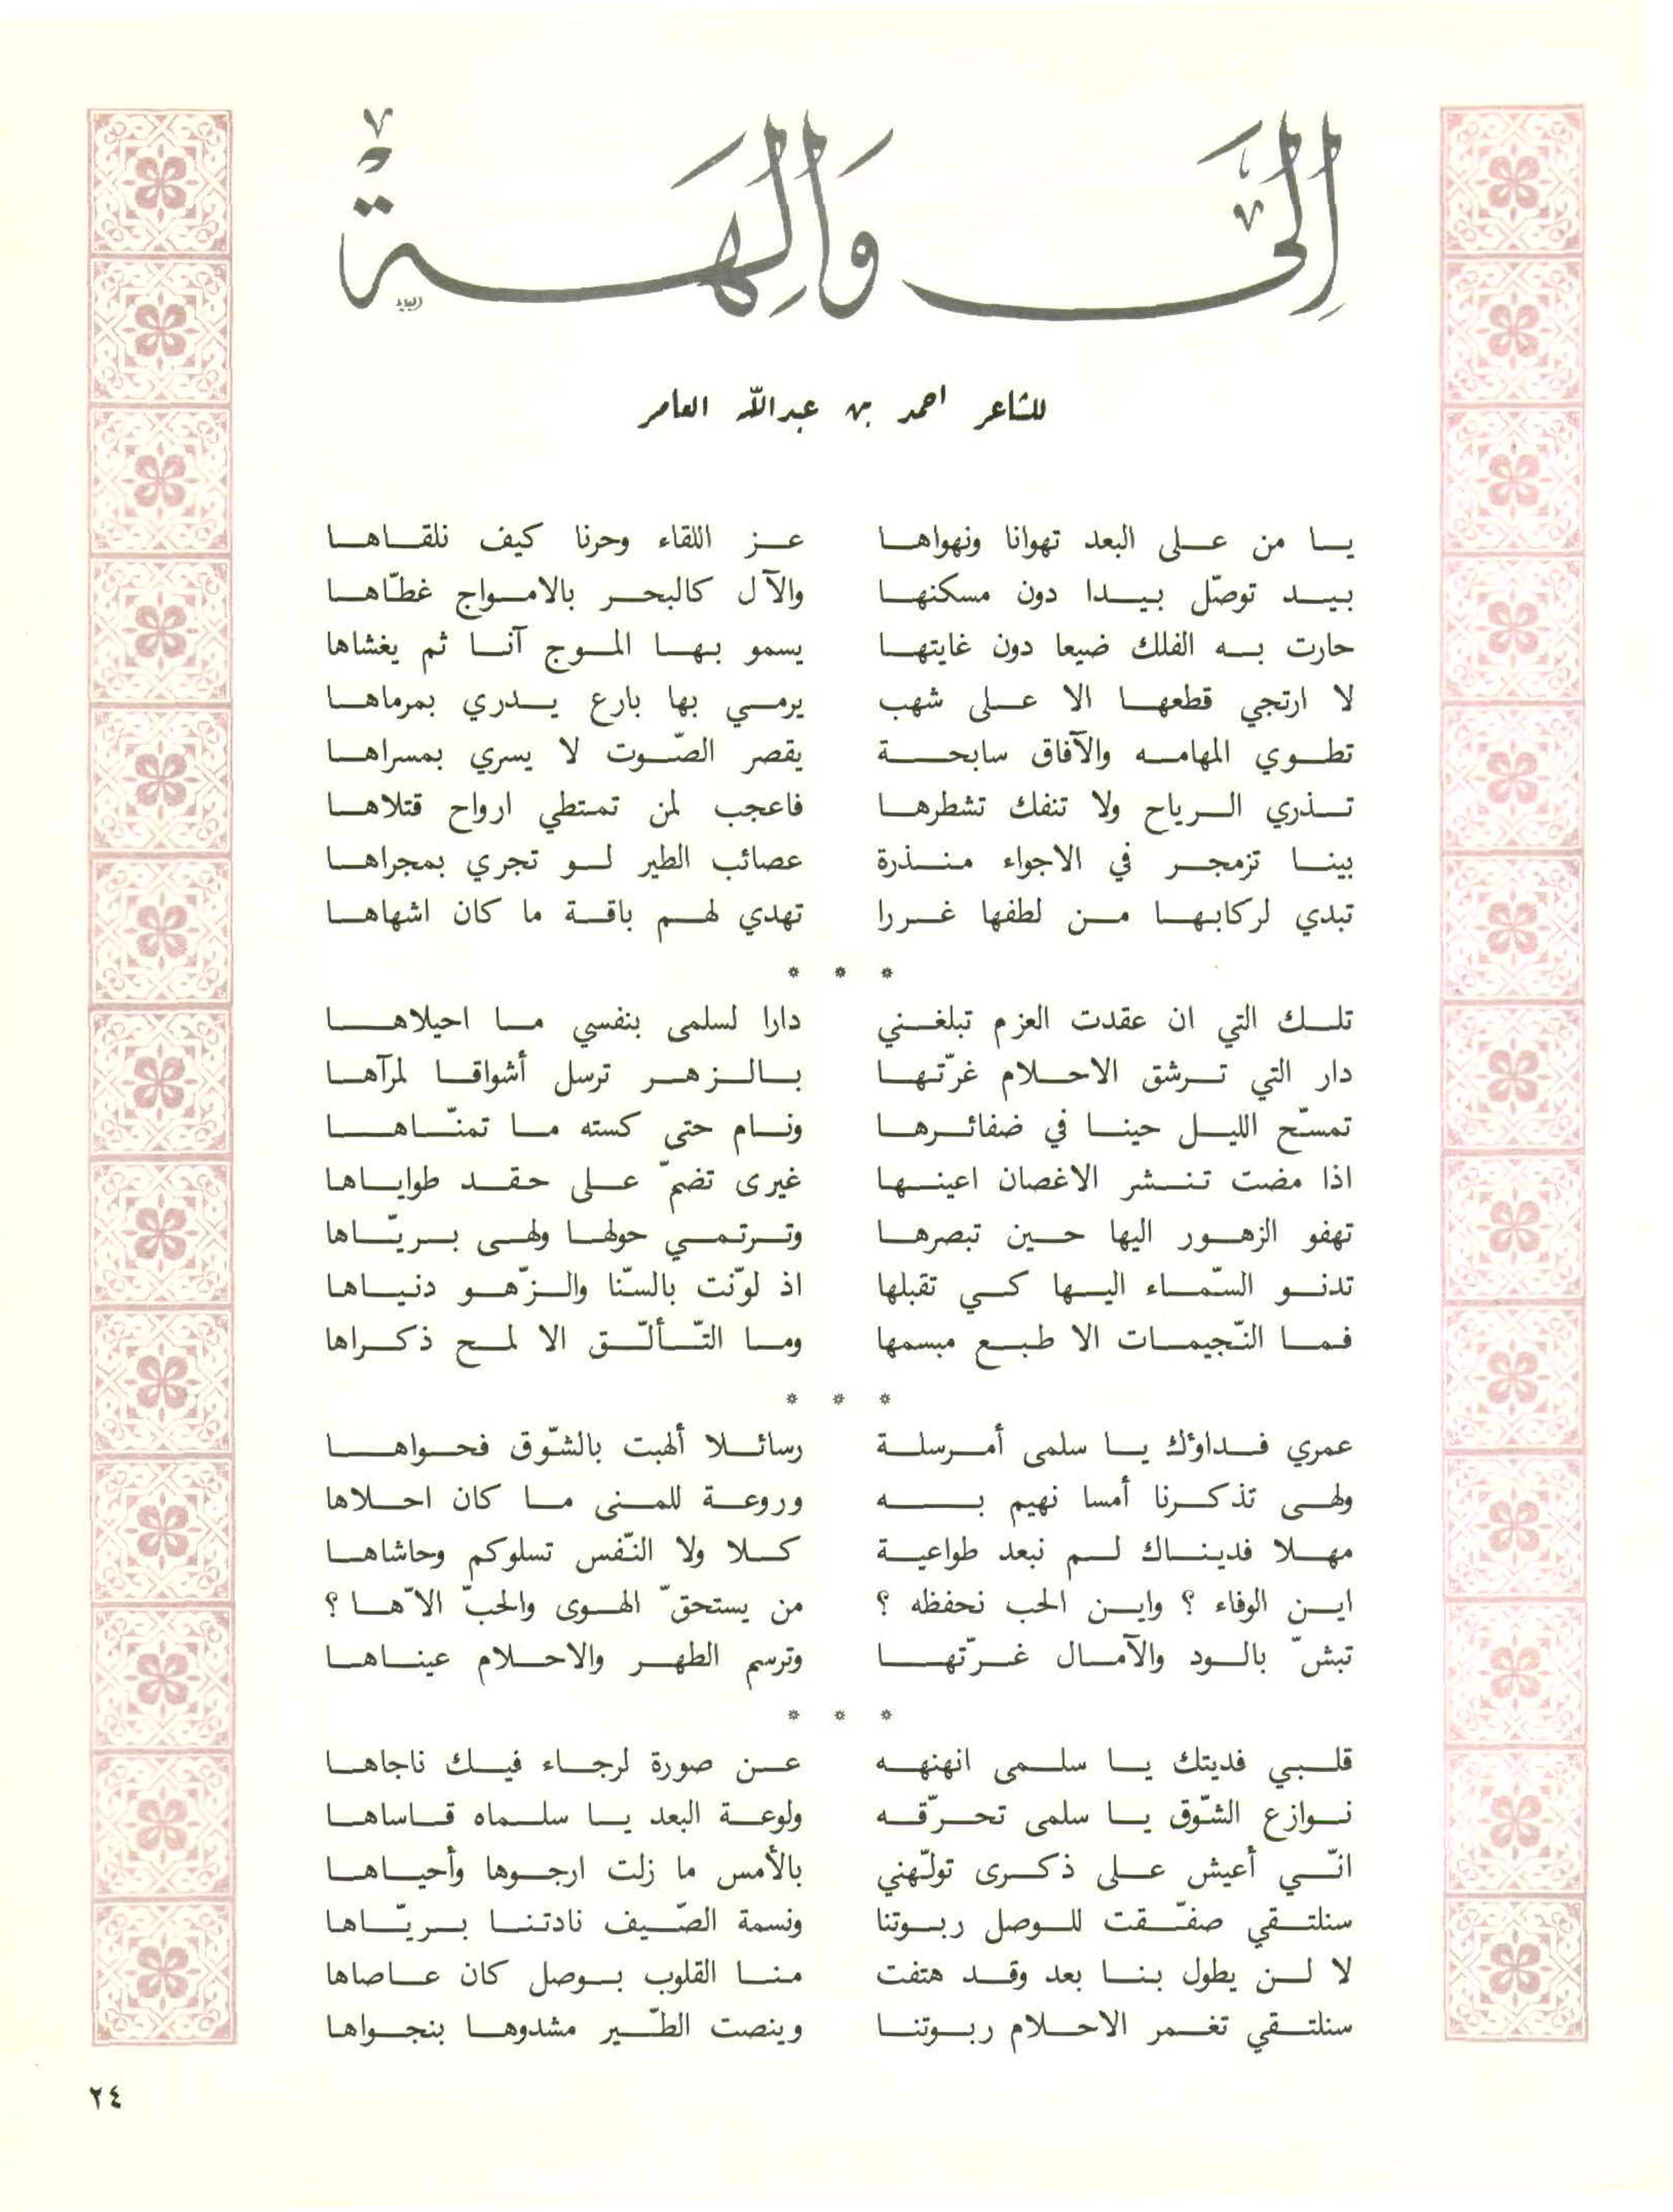 إِلَىٰ وَالِهَةٍ
للشاعر احمد بن عبدالله العامر
يا من على البعد تهوانا ونهواها عز اللقاء وحرنا كيف نلقاها
بيد توصّل بيدا دون مسكنها والآل كالبحر بالامواج غطّاها
حارت به الفلك ضيعا دون غايتها يسمو بها الموج آنا ثم يغشاها
لا ارتجي قطعها الا على شهب يرمي بها بارع يدري بمرماها
تطوي المهامه والآفاق سابحة يقصر الصّوت لا يسري بمسراها
تذري الرياح ولا تنفك تشطرها فاعجب لمن تمتطي ارواح قتلاها
بينا تزمجر في الاجواء منذرة عصائب الطير لو تجري بمجراها
تبدي لركابها من لطفها غررا تهدي لهم باقة ما كان اشهاها
* * *
تلك التي ان عقدت العزم تبلغني دارا لسلمى بنفسي ما احيلاها
دار التي ترشق الاحلام غرّتها بالزهر ترسل أشواقا لمرآها
تمسّح الليل حينا في ضفائرها ونام حتى كسته ما تمنّاها
اذا مضت تنشر الاغصان اعينها غيرى تضمّ على حقد طواياها
تهفو الزهور اليها حين تبصرها وترتمي حولها ولهى بريّاها
تدنو السّماء اليها كي تقبلها اذ لوّنت بالسّنا والزّهو دنياها
فما النّجيمات الا طبع مبسمها وما التّألّق الا لمح ذكراها
* * *
عمري فداؤك يا سلمى أمرسلة رسائلا ألهبت بالشّوق فحواها
ولهى تذكرنا أمسا نهيم به وروعة للمنى ما كان احلاها
مهلا فديناك لم نبعد طواعية كلا ولا النّفس تسلوكم وحاشاها
اين الوفاء ؟ واين الحب نحفظه ؟ من يستحقّ الهوى والحبّ الاّها ؟
تبشّ بالود والآمال غرّتها وترسم الطهر والاحلام عيناها
* * *
قلبي فديتك يا سلمى انهنهه عن صورة لرجاء فيك ناجاها
نوازع الشّوق يا سلمى تحرّقه ولوعة البعد يا سلماه قاساها
انّي أعيش على ذكرى تولّهني بالأمس ما زلت ارجوها وأحياها
سنلتقي صفّقت للوصل ربوتنا ونسمة الصّيف نادتنا بريّاها
لا لن يطول بنا بعد وقد هتفت منا القلوب بوصل كان عاصاها
سنلتقي تغمر الاحلام ربوتنا وينصت الطّير مشدوها بنجواها
٢٤